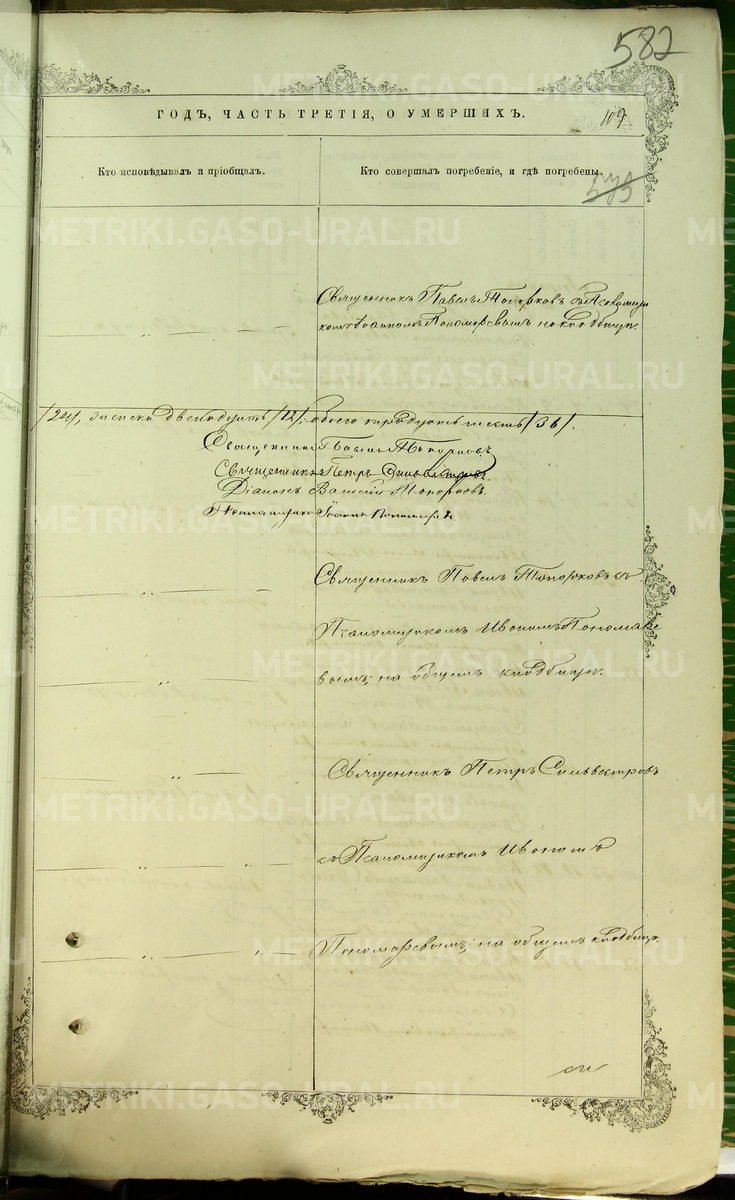 582
ГОДЪ, ЧАСТЬ ТРЕТІЯ, О УМЕРШИХЪ.
109
Кто исповѣдывалъ и пріобщалъ.
Кто совершалъ погребеніе, и гдѣ погребены.
573
Священникъ Павелъ Топорковъ съ Псаломщи
комъ Іоанномъ Пономаревымъ на кладбищѣ.
/24/, женска двенадцать /12/, обоего тридцать шесть /36/.
Священникъ Павелъ Топорковъ
Священникъ Петръ Сильвестровъ.
Діаконъ Василій Топорковъ.
Псаломщикъ Іоаннъ Пономаревъ
Священникъ Павелъ Топорковъ съ
Псаломщикомъ Иваномъ Понома
вымъ; на общемъ кладбищѣ.
Священникъ Петръ Сильвестровъ
съ Псаломщикомъ Иваномъ
Пономаревымъ; на общемъ кладбищѣ.
METRIKI.GASO-URAL.RU